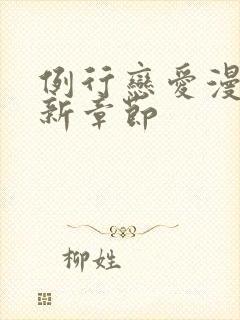 例行戀愛漫
新章節
柳姓